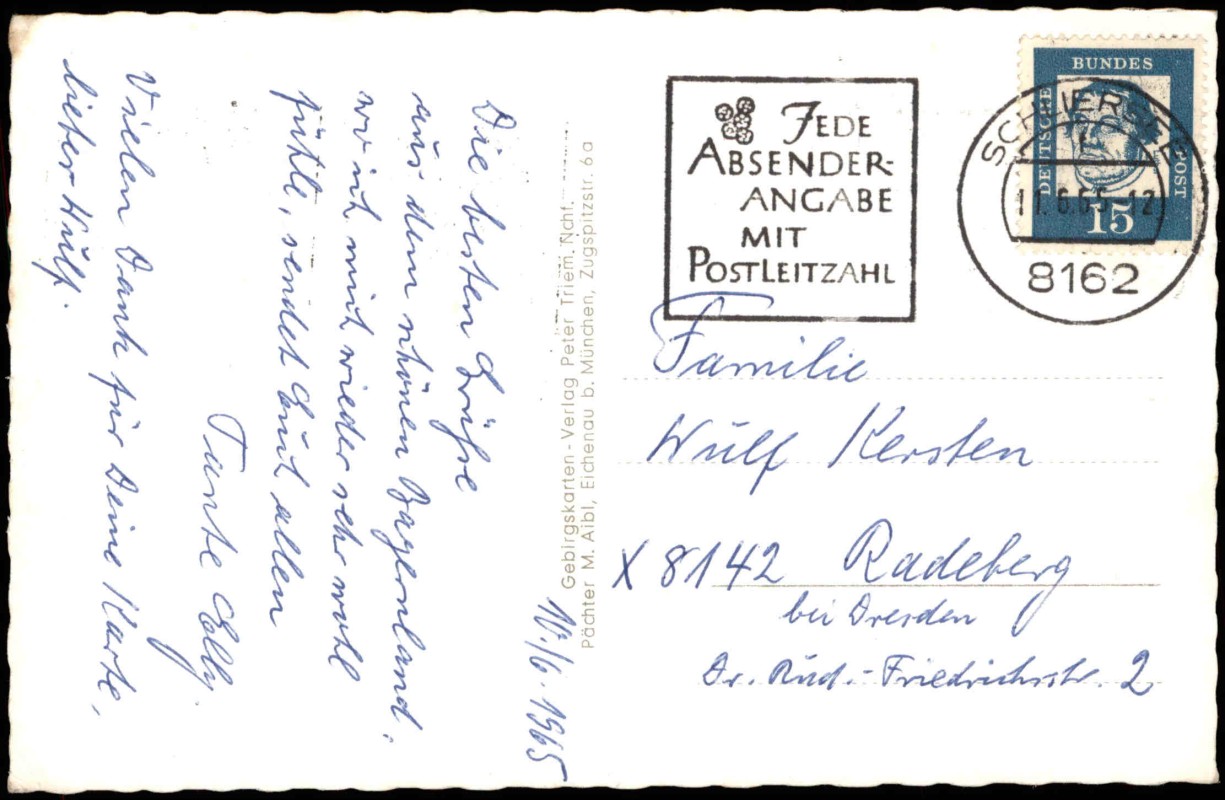 10./6. 1965
Die besten Grüße
aus dem schönen Bayernland,
wo ich mich wieder sehr wohl
fühle, sendet Euch allen
Tante Elly.
Vielen Dank für Deine Karte,
lieber Wulf.
Gebirgskarten-Verlag Peter Triem. Ncht.
Pächter M. Aibl, Eichenau b. München, Zugspitzstr. 6a
JEDE
ABSENDER-
ANGABE
MIT
POSTLEITZAHL
SCHLIERSEE
11.6.65-12
8162
DEUTSCHE
BUNDES
POST
15
Familie
Wulf Kersten
X 8142 Radeberg
bei Dresden
Dr. Rud.-Friedrichsstr. 2